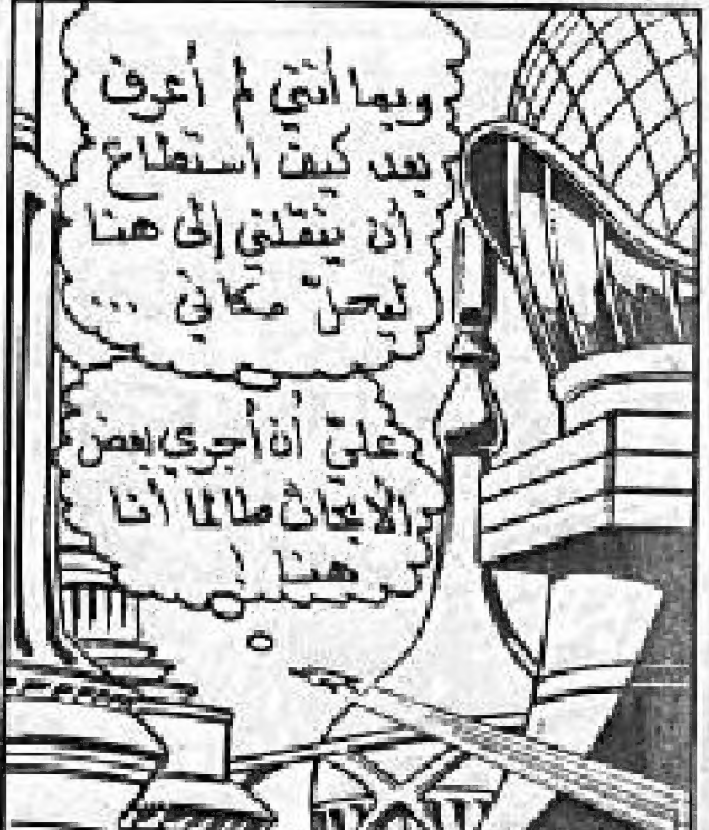 وبما أنني لم أعرف
بعد كيف استطاع
أن ينقلني إلى هنا
ليحلّ مكاني ...
عليّ أن أجري بعض
الأبحاث طالما أنا
هنا !